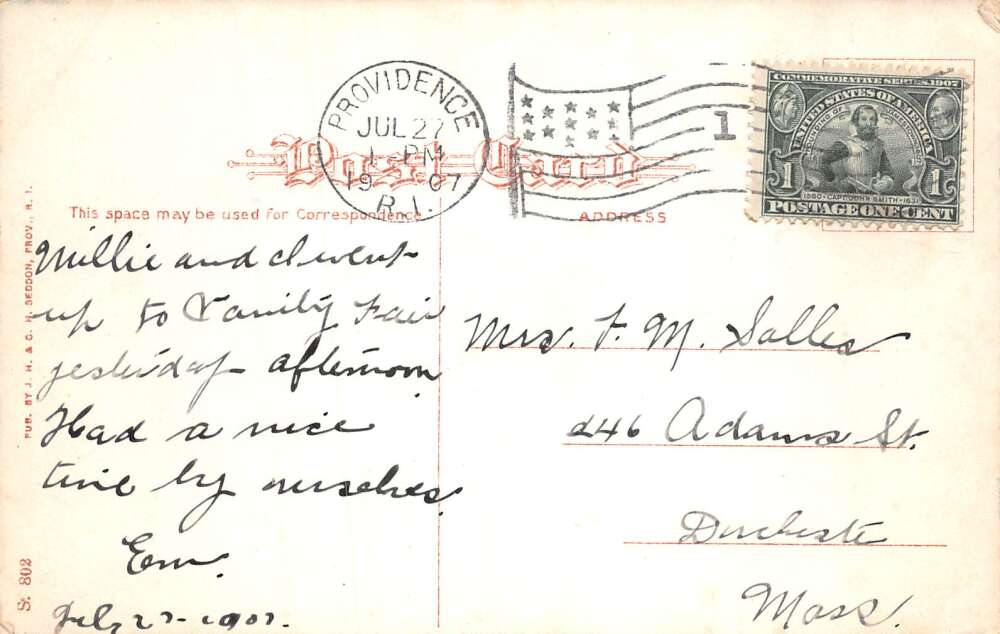 PROVIDENCE
JUL 27
1 - PM
19 07
R.I.
1
COMMEMORATIVE SERIES, 1907
UNITED STATES OF AMERICA
FOUNDING OF JAMESTOWN
1607
1580 · CAPT. JOHN SMITH · 1631
1 1
POSTAGE ONE CENT
Post Card
This space may be used for Correspondence
ADDRESS
Millie and I went
up to Vanity Fair
yesterday afternoon
Had a nice
time by ourselves.
Em.
July 27-1907.
Mrs. F. M. Salles
246 Adams St.
Dorchester
Mass.
PUB. BY J. H. & C. H. SEDDON, PROV., R. I.
S. 802